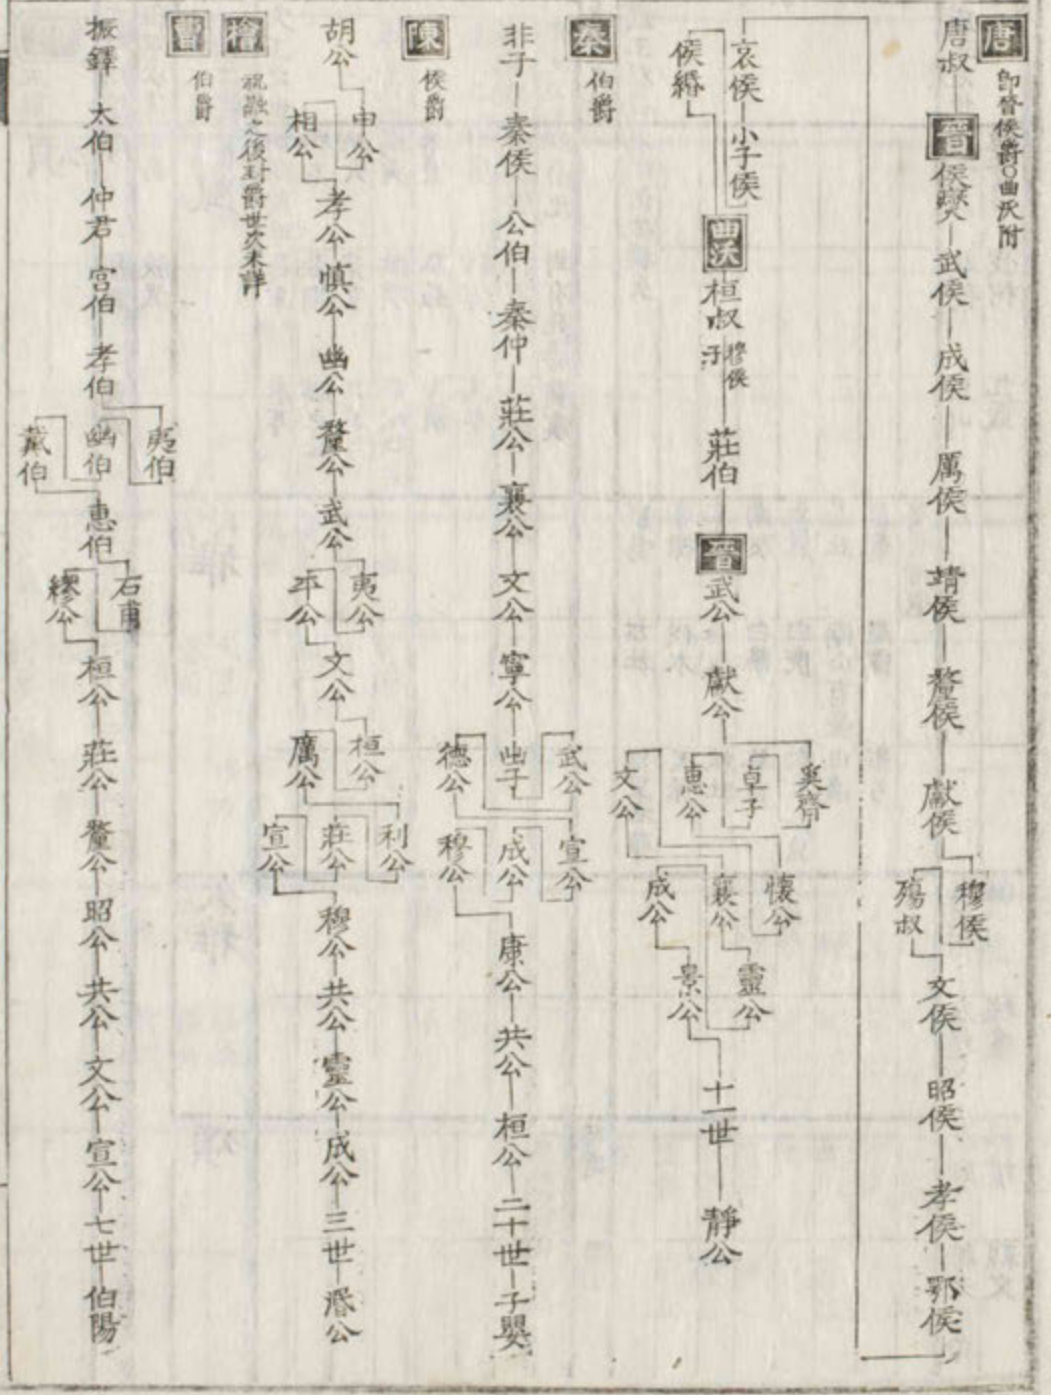 唐
即晉侯爵○曲沃附
唐叔 晉 侊燮 武侯 成侯 厲侯 靖侯 釐侯 獻侯
穆侯
殤叔
文侯 昭侯 孝侯 鄂侯
哀侯 小子侯
侯緡
曲沃 桓叔 穆侯子 莊伯 晉 武公 獻公
奚齊
卓子
惠公
文公
懷公
襄公
成公
靈公
景公
十一世 靜公
秦
伯爵
非子 秦侯 公伯 秦仲 莊公 襄公 文公 寧公
武公
出子
德公
宣公
成公
穆公
康公 共公 桓公 二十世 子嬰
陳
侯爵
胡公
申公
相公
孝公 慎公 幽公 釐公 武公
夷公
平公
文公
桓公
厲公
利公
莊公
宣公
穆公 共公 靈公 成公 三世 湣公
檜
祝融之後封爵世次未詳
曹
伯爵
振鐸 太伯 仲君 宮伯 孝伯
夷伯
幽伯
戴伯
惠伯
石甫
繆公
桓公 莊公 釐公 昭公 共公 文公 宣公 七世 伯陽